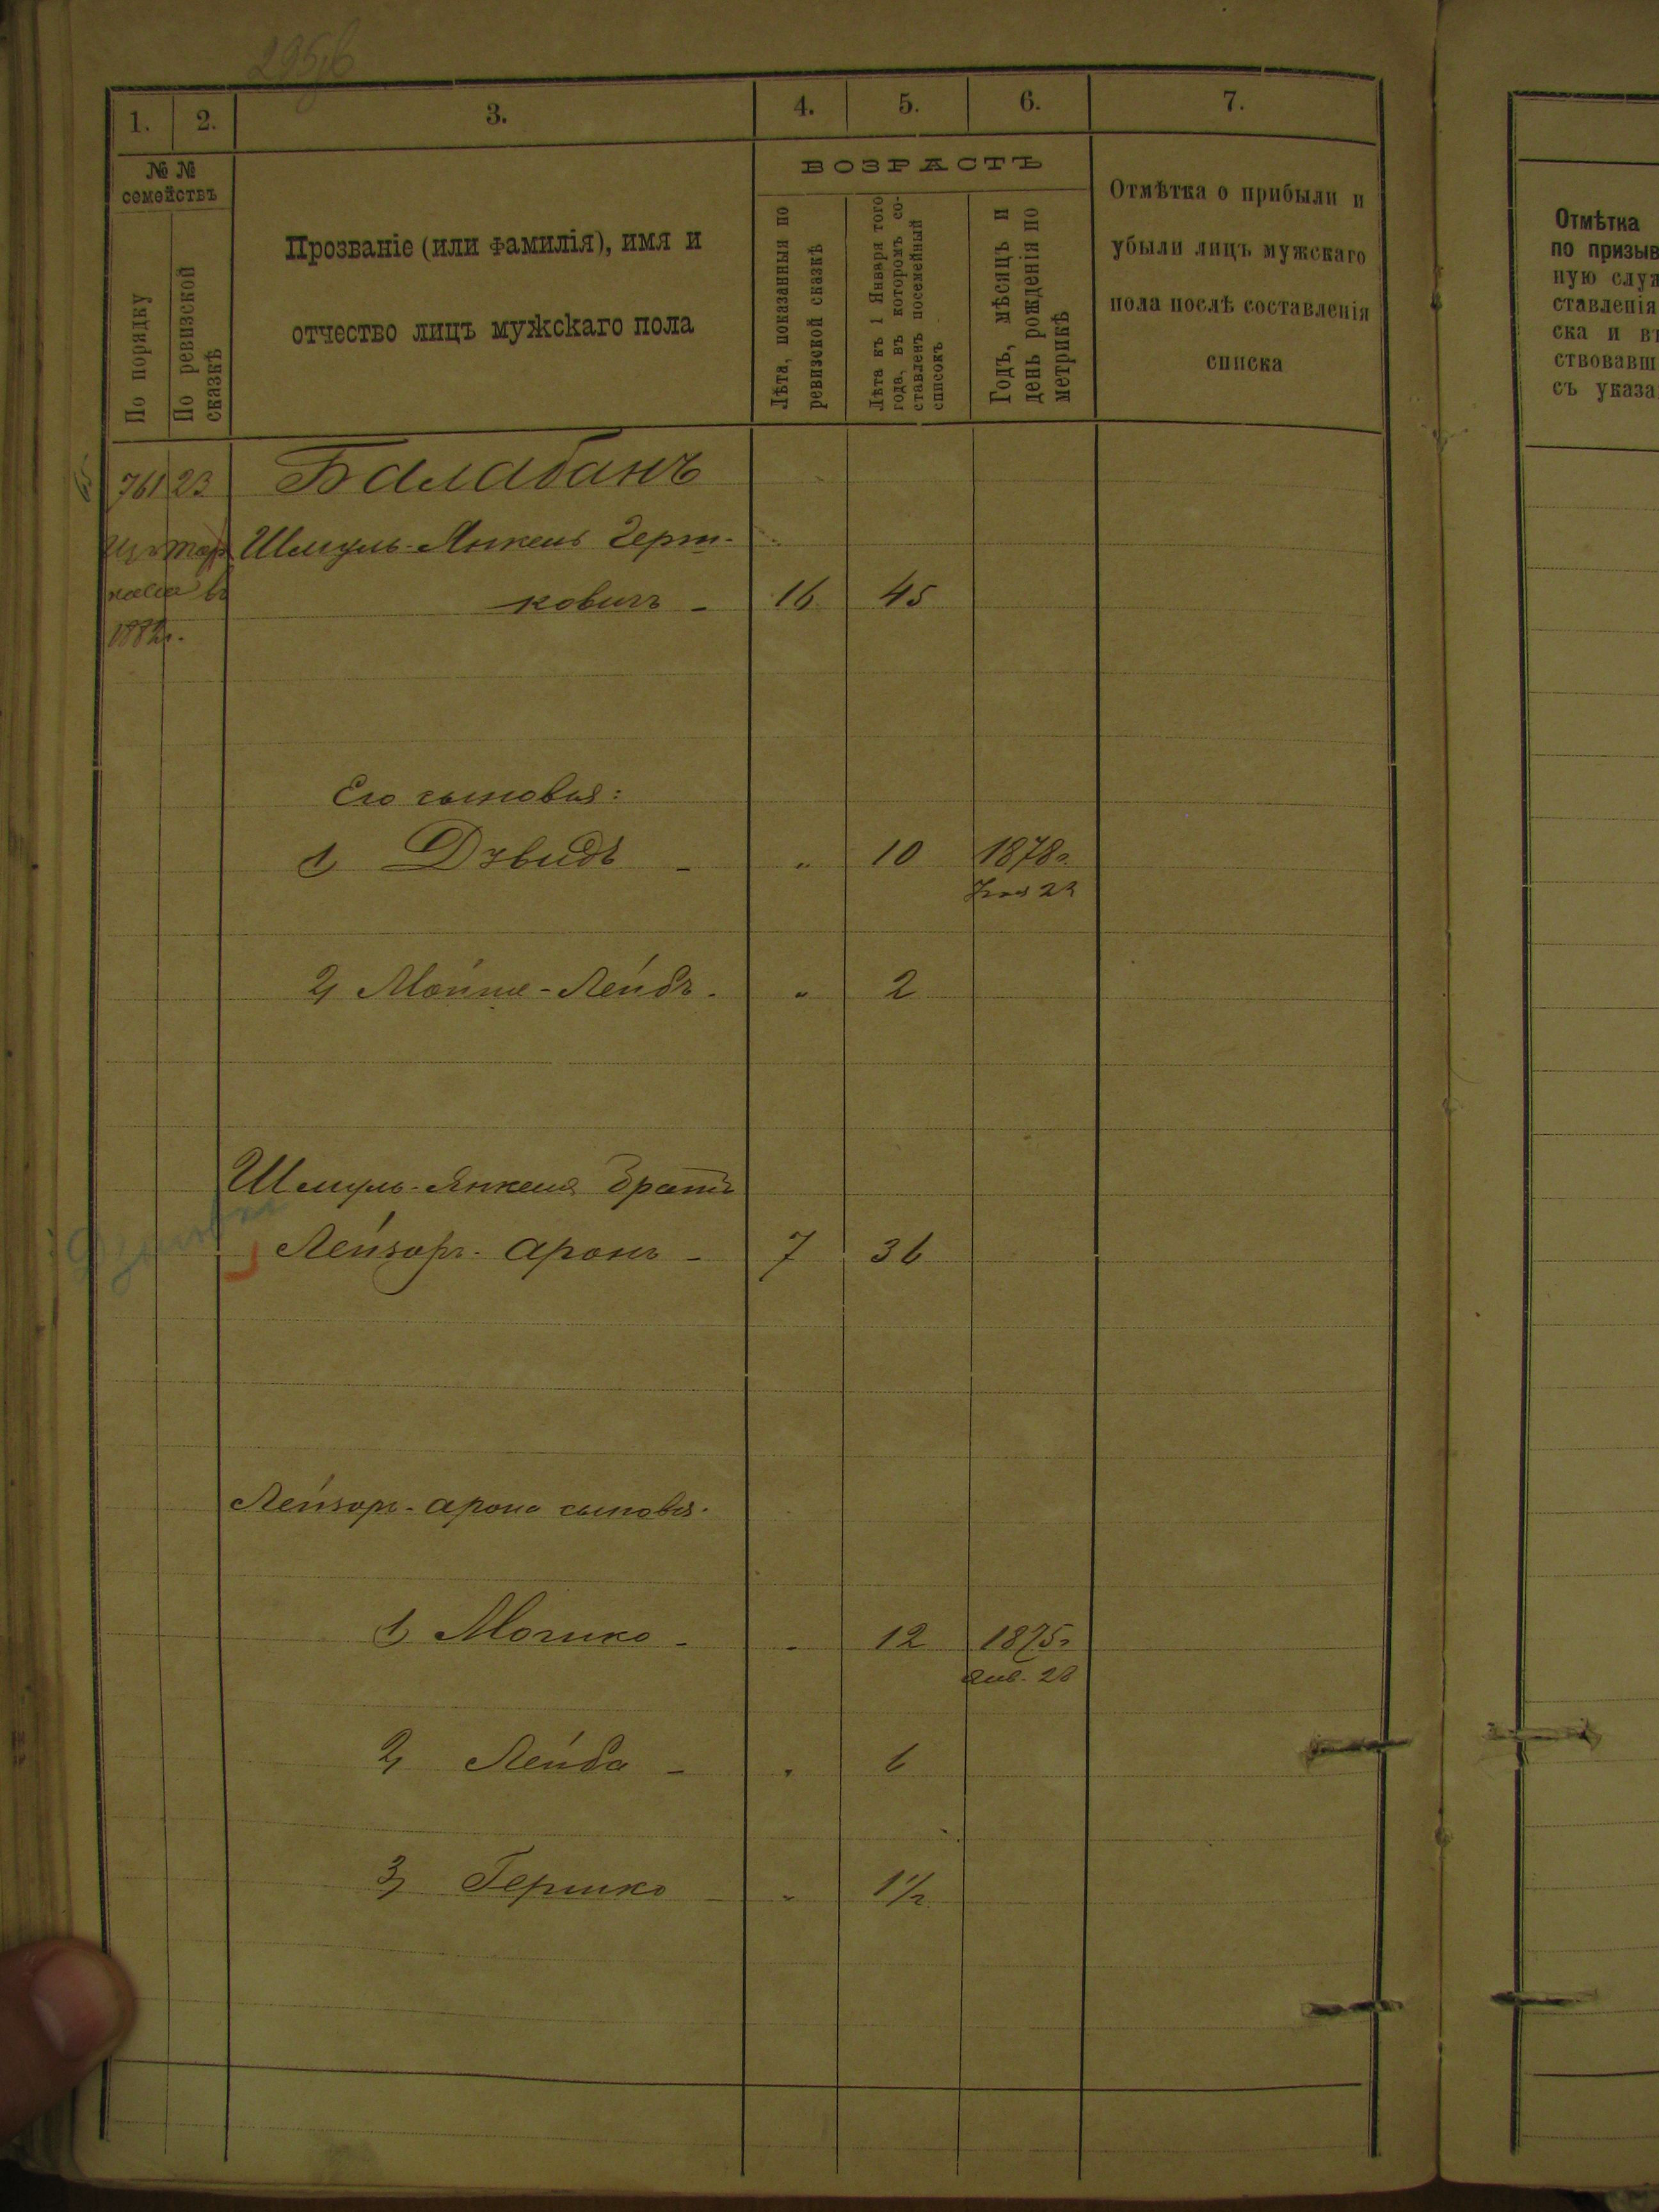 1.
2.
3.
4.
5.
6.
7.
№ №
семействъ
По порядку
По ревизской
сказкѣ
Прозваніе (или фамилія), имя и
отчество лицъ мужскаго пола
ВОЗРАСТЪ
Лѣта, показанныя по
ревизской сказкѣ
Лѣта къ 1 Января того
года, въ которомъ со-
ставленъ посемейный
списокъ
Годъ, мѣсяцъ и
день рожденія по
метрикѣ
Отмѣтка о прибыли и
убыли лицъ мужскаго
пола послѣ составленія
списка
Отмѣтка
по призыв
ную служ
ставленія
ска и въ
ствовавш
съ указа
761 23 Балабанъ
Шмуль-Янкель Герш-
ковичъ - 16 45
1882г.
Его сыновья:
1) Дувидъ - " 10 1878г.
23
2) Мойше-Лейбъ. " 2
Шмуль-Янкеля братъ
Лейзоръ-Аронъ - 7 36
Лейзоръ-Арона сыновья.
1) Мошко - " 12 1875г
Янв. 28
2) Лейба - " 6
3) Гершко - " 1½